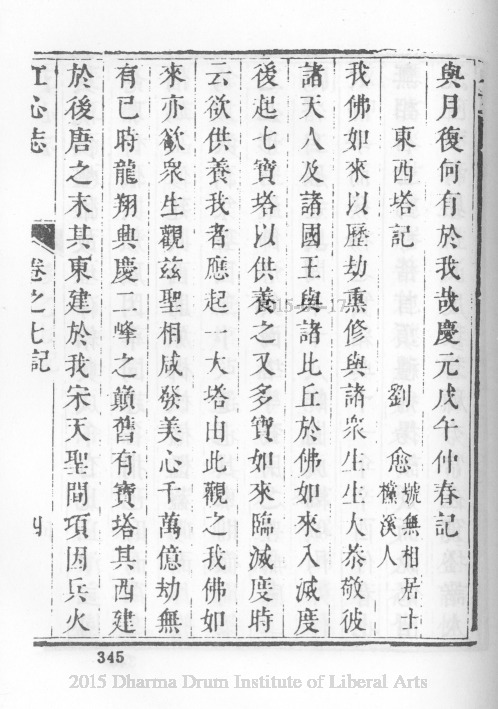 與月復何有於我哉慶元戊午仲春記
東西塔記 劉愈號無相居士檯溪人
我佛如來以歷劫熏修與諸衆生生大恭敬彼
諸天人及諸國王與諸比丘於佛如來入滅度
後起七寶塔以供養之又多寶如來臨滅度時
云欲供養我者應起一大塔由此觀之我佛如
來亦欲衆生觀茲聖相咸發美心千萬億劫無
有已時龍翔興慶二峰之巔舊有寶塔其西建
於後唐之末其東建於我宋天聖間項因兵火
江心志 卷之七記 四
345
2015 Dharma Drum Institute of Liberal Arts